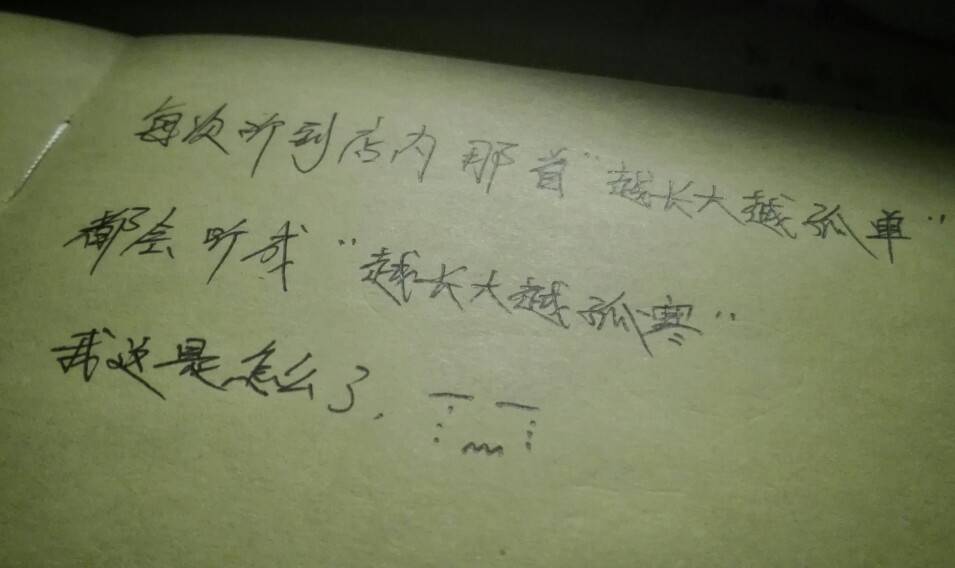 每次听到店内那首“越长大越孤单”
都会听成“越长大越孤寒”
我这是怎么了.